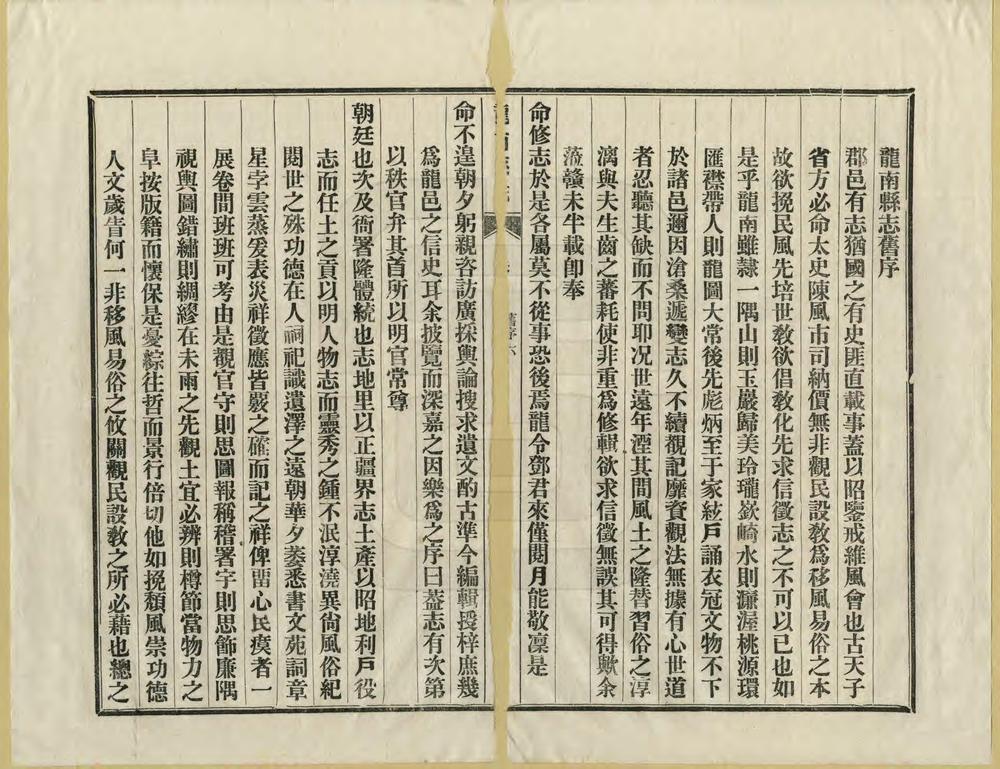 龍南縣志舊序
郡邑有志猶國之有史匪直載事蓋以昭鑒戒維風會也古天子
省方必命太史陳風市司納價無非觀民設敎爲移風易俗之本
故欲挽民風先培世敎欲倡敎化先求信徵志之不可以已也如
是乎龍南雖隸一隅山則玉巖歸美玲瓏欹崎水則濂渥桃源環
匯襟帶人則龍圖大常後先彪炳至于家絃戶誦衣冠文物不下
於諸邑邇因滄桑遞變志久不續覩記靡資觀法無據有心世道
者忍聽其缺而不問耶况世遠年湮其間風土之隆替習俗之淳
漓與夫生齒之蕃耗使非重爲修輯欲求信徵無誤其可得歟余
蒞贛未半載卽奉
命修志於是各屬莫不從事恐後焉龍令鄧君來僅閱月能敬凜是
舊序六
命不遑朝夕躬親咨訪廣採輿論搜求遺文酌古準今編輯授梓庶幾
爲龍邑之信史耳余披覽而深嘉之因樂爲之序曰蓋志有次第
以秩官弁其首所以明官常尊
朝廷也次及衙署隆體統也志地里以正疆界志土產以昭地利戶役
志而任土之貢以明人物志而靈秀之鍾不泯淳澆異尙風俗紀
閱世之殊功德在人祠祀識遺澤之遠朝華夕萎悉書文苑詞章
星孛雲蒸爰表災祥徵應皆嚴之確而記之祥俾畱心民瘼者一
展卷間班班可考由是觀官守則思圖報稱稽署宇則思節廉隅
視輿圖錯繡則綢繆在未雨之先觀土宜必辨則樽節當物力之
阜按版籍而懷保是憂綜往哲而景行倍切他如挽頹風崇功德
人文歲眚何一非移風易俗之攸關觀民設敎之所必藉也總之